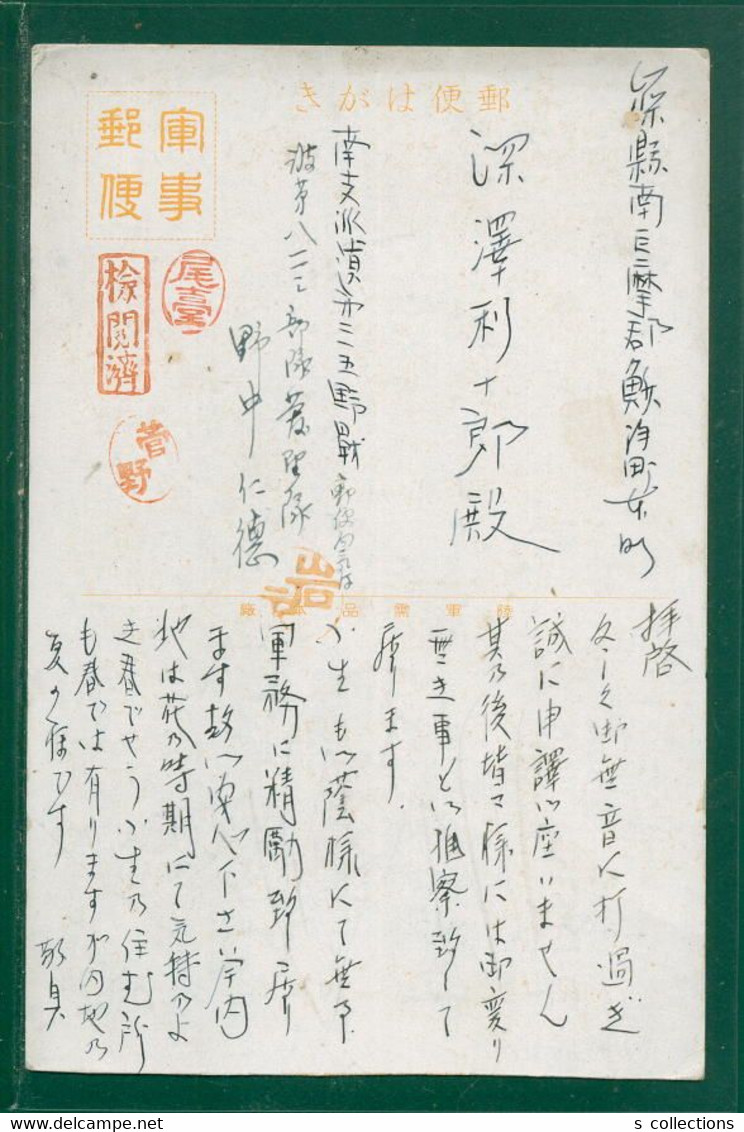 郵便はがき
軍事
郵便
検閲済
尾臺
菅野
山梨縣南巨摩郡鰍沢町
深澤利十郎殿
南支派遣第二五野戰郵便局気付
波第八一二三部隊
野中仁德
陸軍需品本廠
拝啓
久しく御無音に打過ぎ
誠に申譯御座いません
其の後皆々様には御変り
無き事と御推察致して
居ります.
小生も御蔭様にて無事
軍務に精勵致し居り
ます故御安心下さい 當内
地は花の時期にて気持のよ
き春でせう小生の住む所
も春では有りますが内地の
夏の様です
敬具
s collections